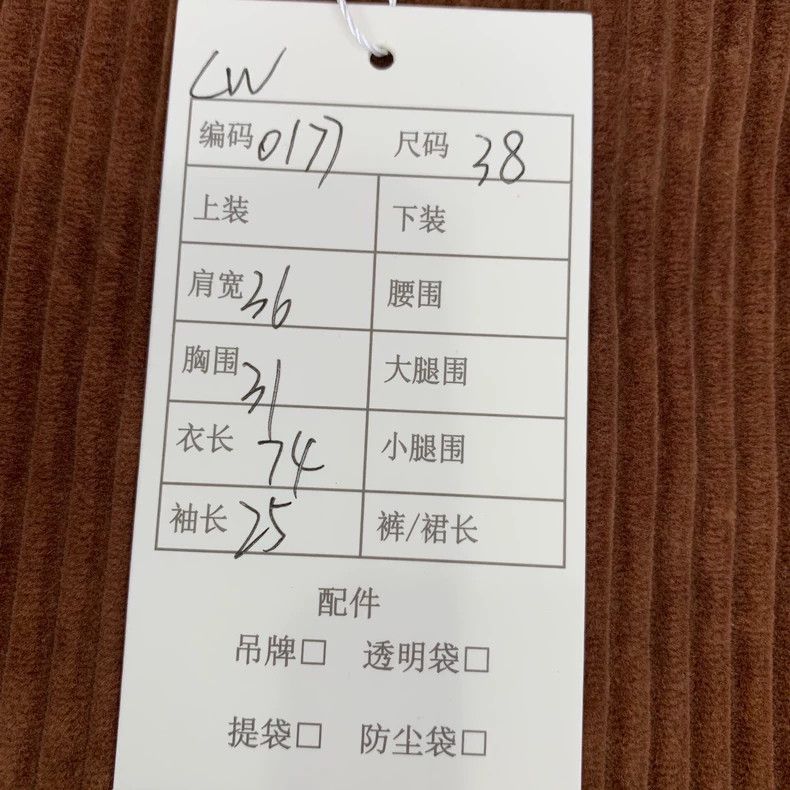 LW
编码 0177 尺码 38
上装 下装
肩宽 36 腰围
胸围 31 大腿围
衣长 74 小腿围
袖长 25 裤/裙长
配件
吊牌□ 透明袋□
提袋□ 防尘袋□